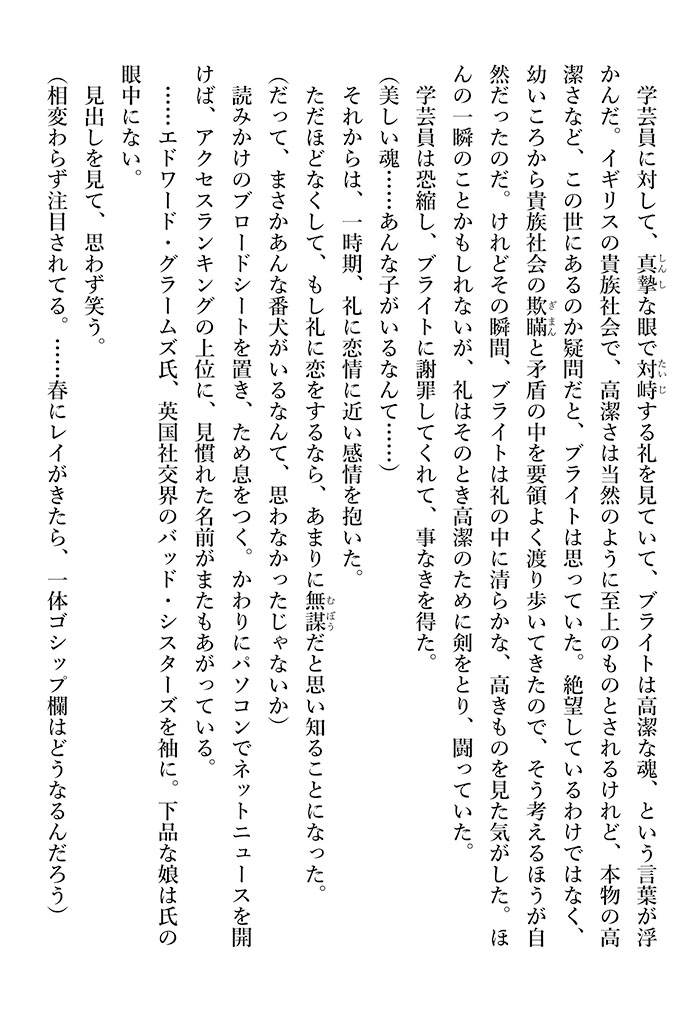 学芸員に対して、真摯な眼で対峙する礼を見ていて、ブライトは高潔な魂、という言葉が浮
かんだ。イギリスの貴族社会で、高潔さは当然のように至上のものとされるけれど、本物の高
潔さなど、この世にあるのか疑問だと、ブライトは思っていた。絶望しているわけではなく、
幼いころから貴族社会の欺瞞と矛盾の中を要領よく渡り歩いてきたので、そう考えるほうが自
然だったのだ。けれどその瞬間、ブライトは礼の中に清らかな、高きものを見た気がした。ほ
んの一瞬のことかもしれないが、礼はそのとき高潔のために剣をとり、闘っていた。
学芸員は恐縮し、ブライトに謝罪してくれて、事なきを得た。
(美しい魂……あんな子がいるなんて……)
それからは、一時期、礼に恋情に近い感情を抱いた。
ただほどなくして、もし礼に恋をするなら、あまりに無謀だと思い知ることになった。
(だって、まさかあんな番犬がいるなんて、思わなかったじゃないか)
読みかけのブロードシートを置き、ため息をつく。かわりにパソコンでネットニュースを開
けば、アクセスランキングの上位に、見慣れた名前がまたもあがっている。
……エドワード・グラームズ氏、英国社交界のバッド・シスターズを袖に。下品な娘は氏の
眼中にない。
見出しを見て、思わず笑う。
(相変わらず注目されてる。……春にレイがきたら、一体ゴシップ欄はどうなるんだろう)